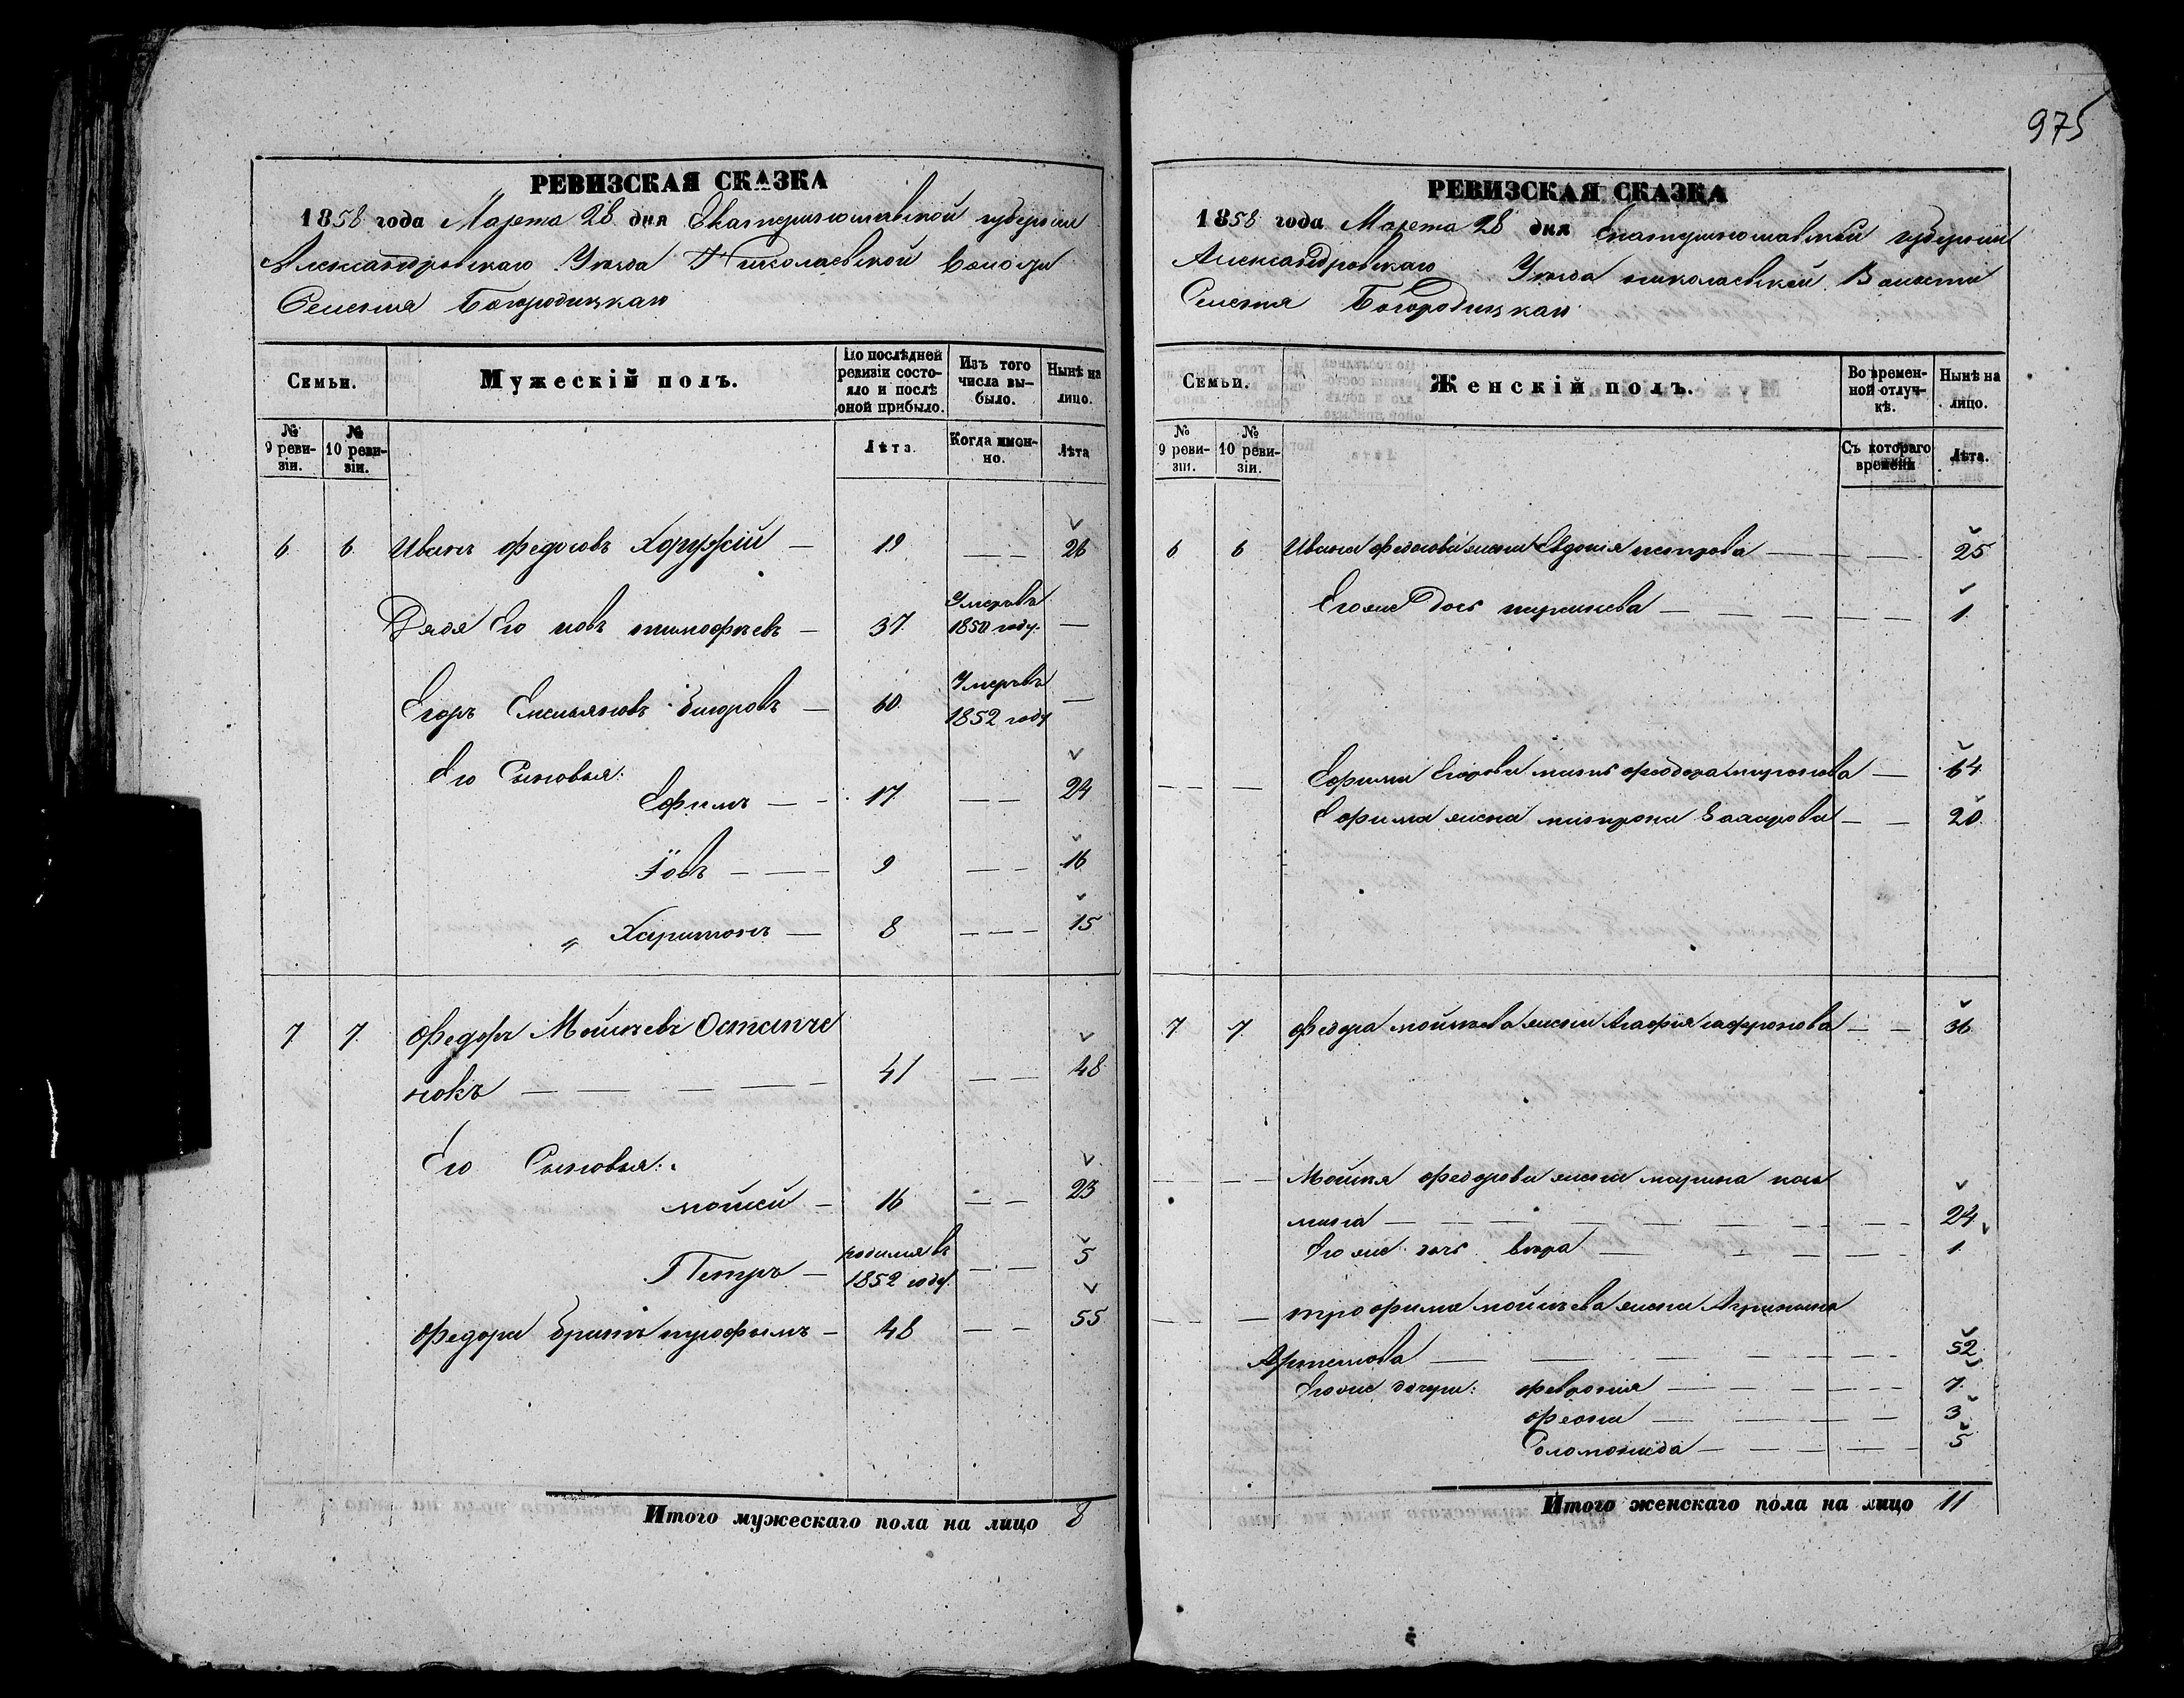 975
РЕВИЗСКАЯ СКАЗКА
1858 года Марта 28 дня Екатеринославской губернии
Александровскаго Уезда Николаевской Волости
Селения Богородицкаго
Семьи.
Мужескій полъ.
По послѣдней ревизіи состо-
яло и послѣ
оной прибыло.
Изъ того
числа вы-
было.
Нынѣ на
лицо.
№
9 реви-
зіи.
№
10 реви-
зіи.
Лѣта.
Когда имен-
но.
Лѣта
6 6 Иванъ Федоровъ Хоружій — 19 — — 26
Дядя Его Іовъ тимофѣевъ — 37 Умеръ въ
1850 году. —
Егоръ Емельяновъ — 60 Умеръ въ
1852 году —
Его Сыновья:
Ефимъ — — 17 — — 24
Їовъ — — — 9 — — 16
„ Харитонъ — 8 — — — 15
7 7. Федоръ Мойсѣевъ Остапче
нокъ — — — — — 41 — — 48
Его Сыновья:
мойсей — 16 — — 23
Петръ — родился въ
1852 году. — — 5
Федора братъ трофымъ — 48 — — 55
Итого мужескаго пола на лицо 8
РЕВИЗСКАЯ СКАЗКА
1858 года Марта 28 дня Екатеринославской губернии
Александровскаго Уезда николаевской Волости
Селения Богородицкаго
Семьи.
Женскій полъ.
Во времен-
ной отлуч-
кѣ.
Нынѣ на
лицо.
№
9 реви-
зіи.
№
10 реви-
зіи.
Съ котораго
времени
Лѣта.
6 6 Ивана Федорова жена Евдокія петрова — — — 25
Егоже Дочь — — — — — 1
Ефима Егорова мать феодора миронова — 64
Ефима жена — — 20
7 7. Федора мойсѣева жена Агафія сафронова — — 36
— — — Мойсея федорова жена марина козь
мина — — — — — — — — 24
Егоже дочь вѣра — — — — — 1
— — трофима мойсѣева жена Агрипина
Артемова — — — — — — 52
Егоже дочери: феврония — — — — — 7.
— — — — — 3
Соломонида — — — — — 5
Итого женскаго пола на лицо 11